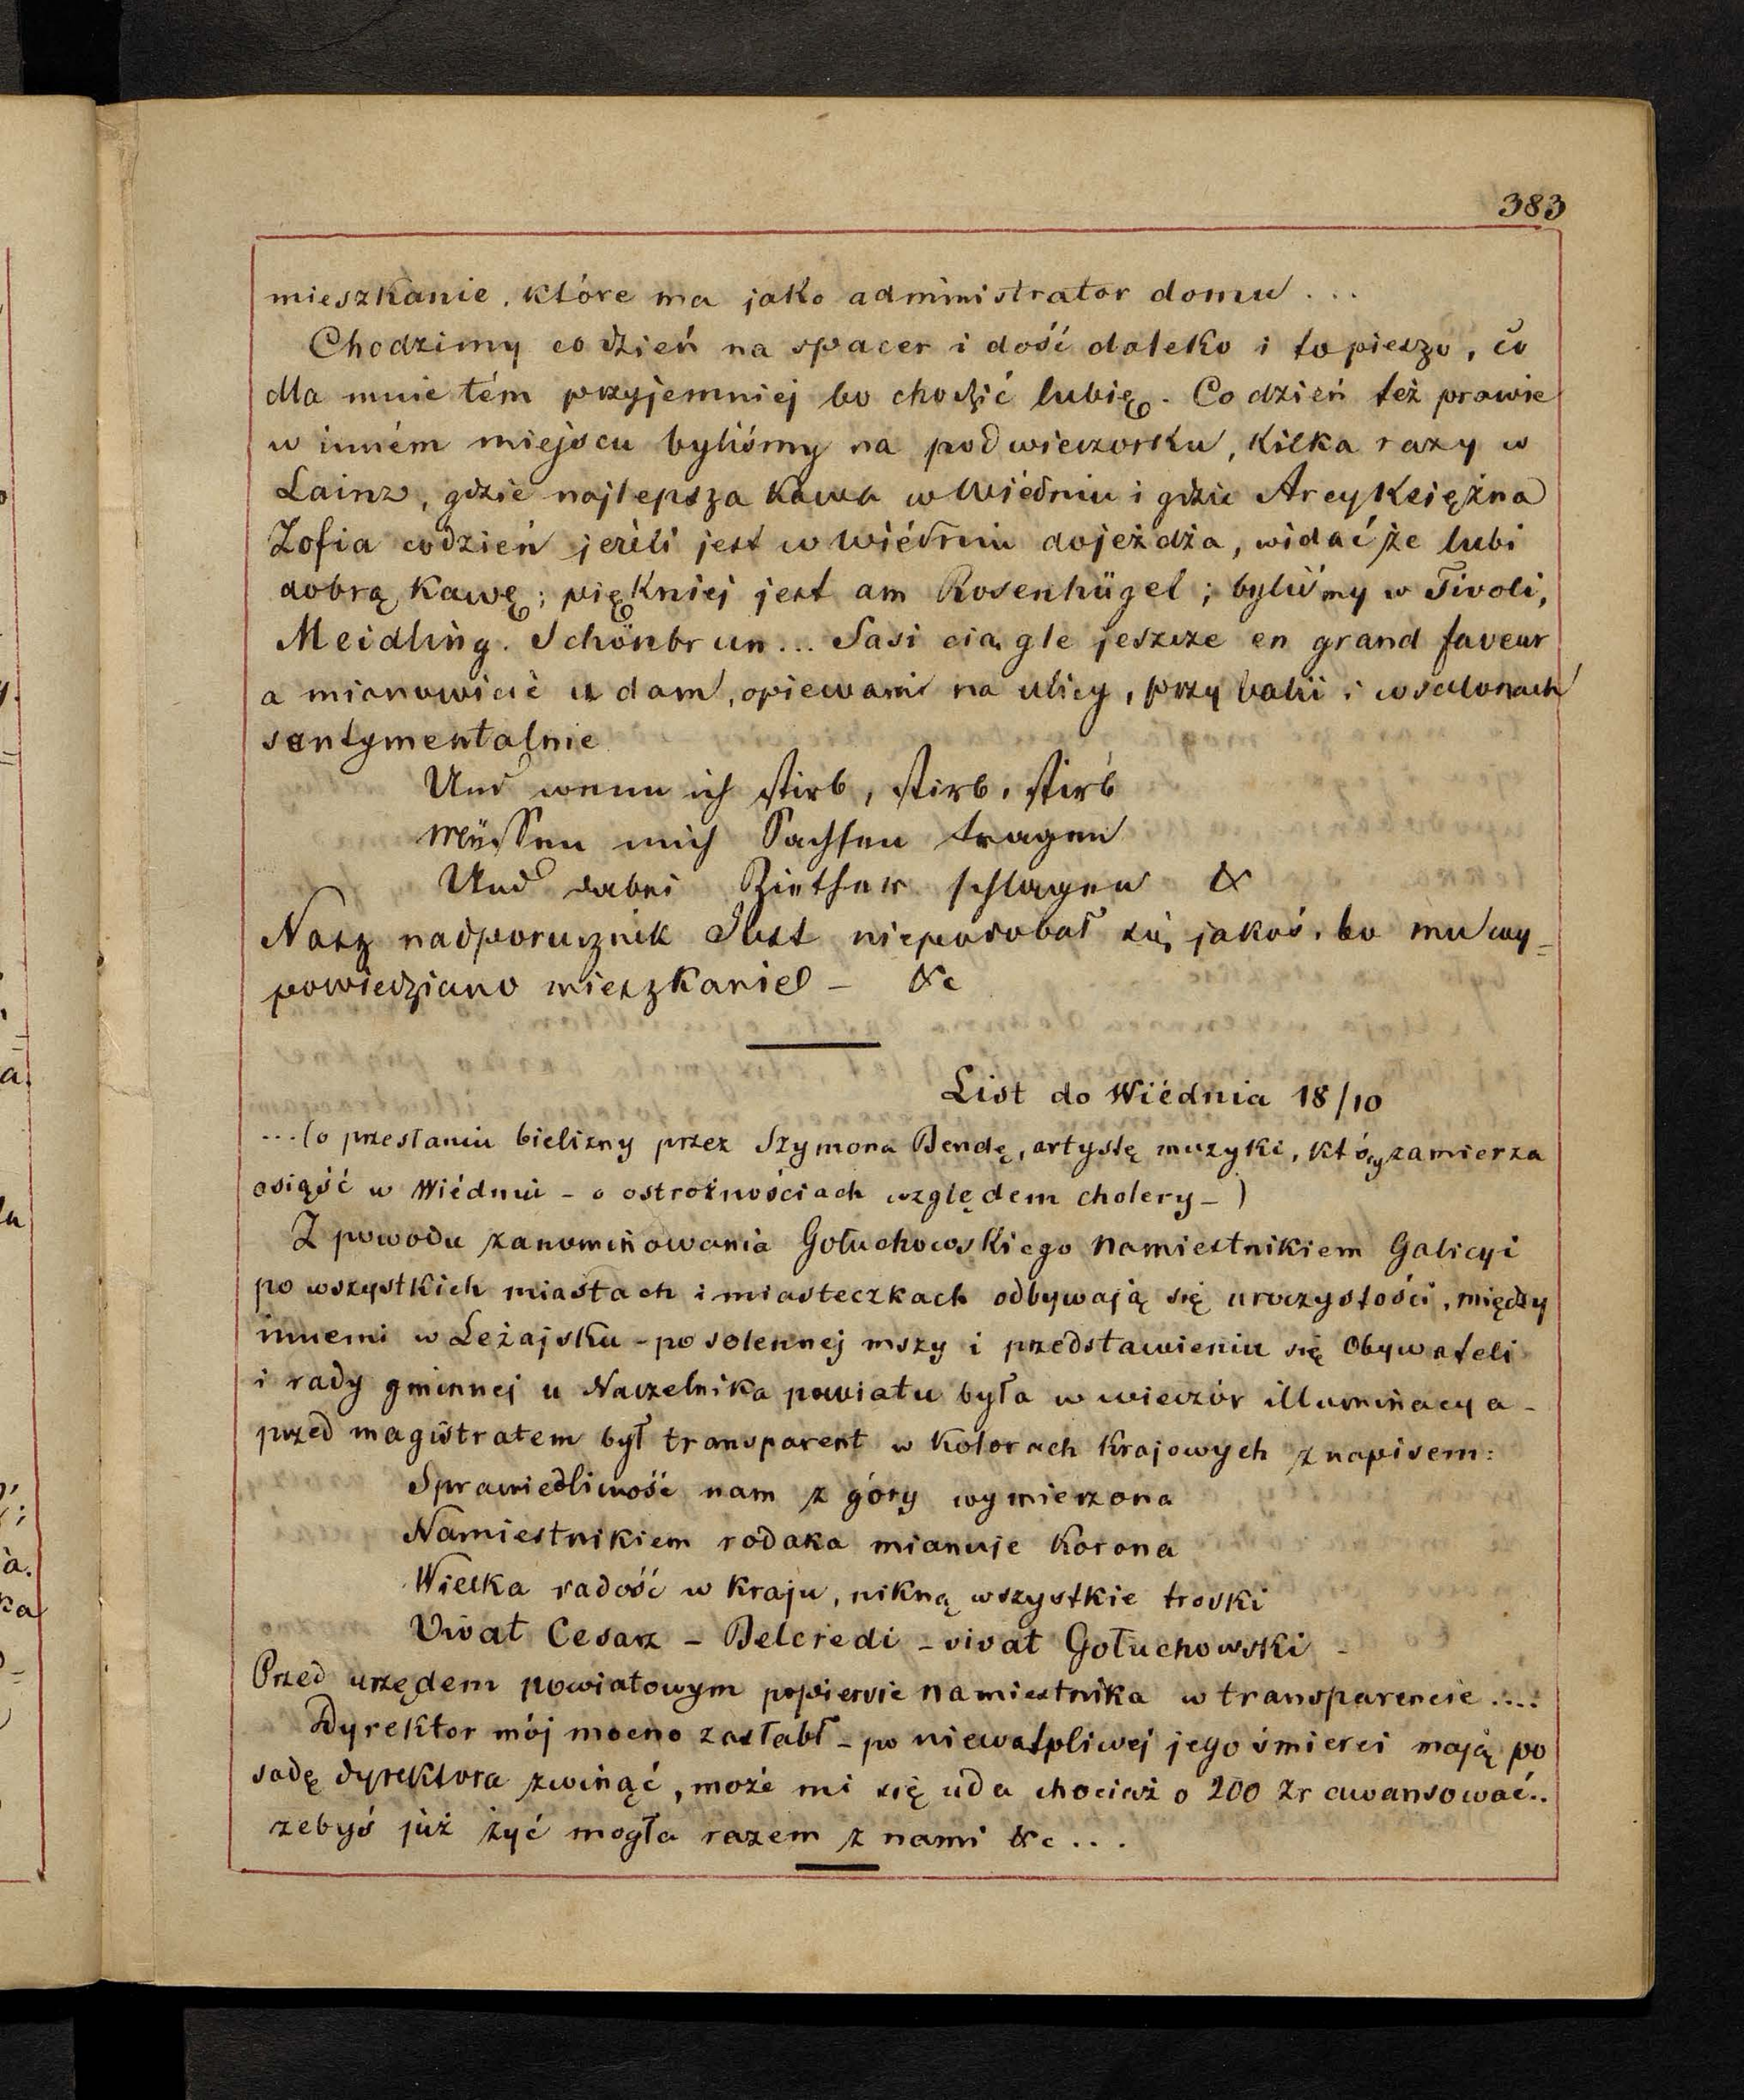 383
mieszkanie, które ma jako administrator domu...
Chodzimy co dzień na spacer i dość daleko i to pieszo, co
dla mnie tém przyjemniej bo chodzić lubię. Co dzień też prawie
w inném miejscu byliśmy na podwieczorku, kilka razy w
Lainz, gdzie najlepsza kawa w Wiédniu i gdzie Arcyksiężna
Zofia codzień jeżeli jest w Wiédniu dojeżdża, widać że lubi
dobrą kawę; piękniej jest am Rosenhügel; byliśmy w Tivoli,
Meidling. Schönbrun... Sasi ciągle jeszcze en grand faveur
a mianowicie u dam, opiewani na ulicy, przy balii i w salonach
sentymentalnie
Und wenn ich stirb, stirb, stirb
Müssen mich Sachsen tragen
Und dabei Ziether schlagen &
Nasz nadporucznik Just niepodobał się jakoś, bo mu wy=
powiedziano mieszkanie – &c
List do Wiédnia 18/10
...(o przesłaniu bielizny przez Szymona Bendę, artystę muzyki, który zamierza
osiąść w Wiédniu – o ostrożnościach względem cholery –)
Z powodu zanominowania Gołuchowskiego Namiestnikiem Galicyi
po wszystkich miastach i miasteczkach odbywają się uroczystości, między
innemi w Leżajsku – po solennej mszy i przedstawieniu się Obywateli
i rady gminnej u Naczelnika powiatu była w wieczór illuminacya –
przed magistratem był transparent w kolorach krajowych z napisem:
Sprawiedliwość nam z góry wymierzona
Namiestnikiem rodaka mianuje Korona
Wielka radość w kraju, nikną wszystkie troski
Vivat Cesarz – Belcredi – vivat Gołuchowski –
Przed urzędem powiatowym popiersie namiestnika w transparencie....
Dyrektor mój mocno zasłabł – po niewatpliwej jego śmierci mają po
sadę dyrektora zwinąć, może mi się uda chociaż o 200 Zr awansować..
żebyś już żyć mogła razem z nami &c...